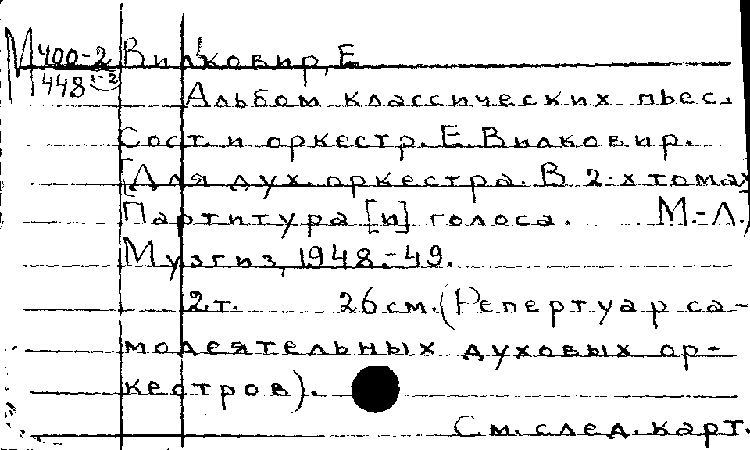 М 400-2 Вилковир, Е
448 1-2
Альбом классических пьес.
Сост. и оркестр. Е. Вилковир.
[Для дух. оркестра. В 2-х томах
Партитура [и] голоса. М.-Л.,
Музгиз, 1948.-49.
2.т. 26 см. (Репертуар са-
модеятельных духовых ор-
кестров).
См. след. карт.